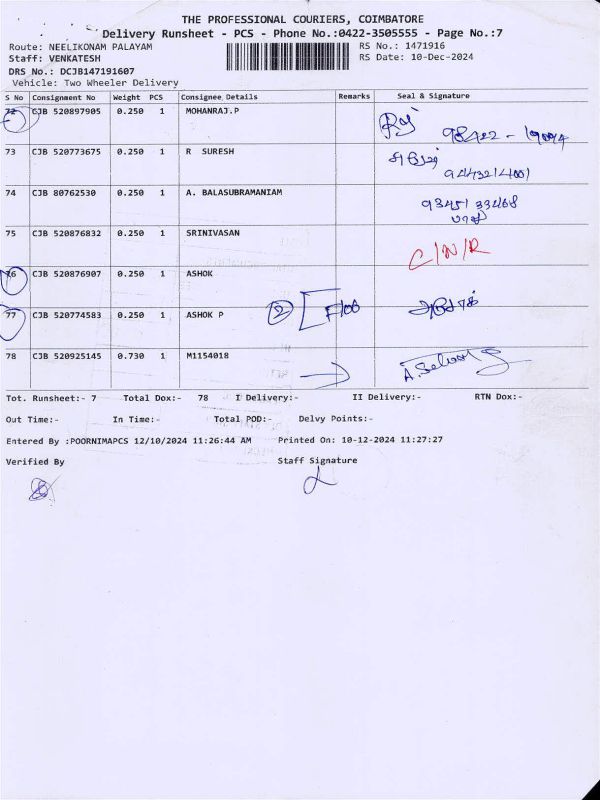 THE PROFESSIONAL COURIERS, COIMBATORE
Delivery Runsheet - PCS - Phone No.:0422-3505555 - Page No.:7
Route: NEELIKONAM PALAYAM RS No.: 1471916
Staff: VENKATESH RS Date: 10-Dec-2024
DRS No.: DCJB147191607
Vehicle: Two Wheeler Delivery
S No Consignment No Weight PCS Consignee Details Remarks Seal & Signature
72 CJB 520897905 0.250 1 MOHANRAJ.P
73 CJB 520773675 0.250 1 R SURESH
9443214001
74 CJB 80762530 0.250 1 A. BALASUBRAMANIAM
93451 33468
75 CJB 520876832 0.250 1 SRINIVASAN C/N/R
76 CJB 520876907 0.250 1 ASHOK
77 CJB 520774583 0.250 1 ASHOK P 2
78 CJB 520925145 0.730 1 M1154018
Tot. Runsheet:- 7 Total Dox:- 78 I Delivery:- II Delivery:- RTN Dox:-
Out Time:- In Time:- Total POD:- Delvy Points:-
Entered By :POORNIMAPCS 12/10/2024 11:26:44 AM Printed On: 10-12-2024 11:27:27
Verified By Staff Signature